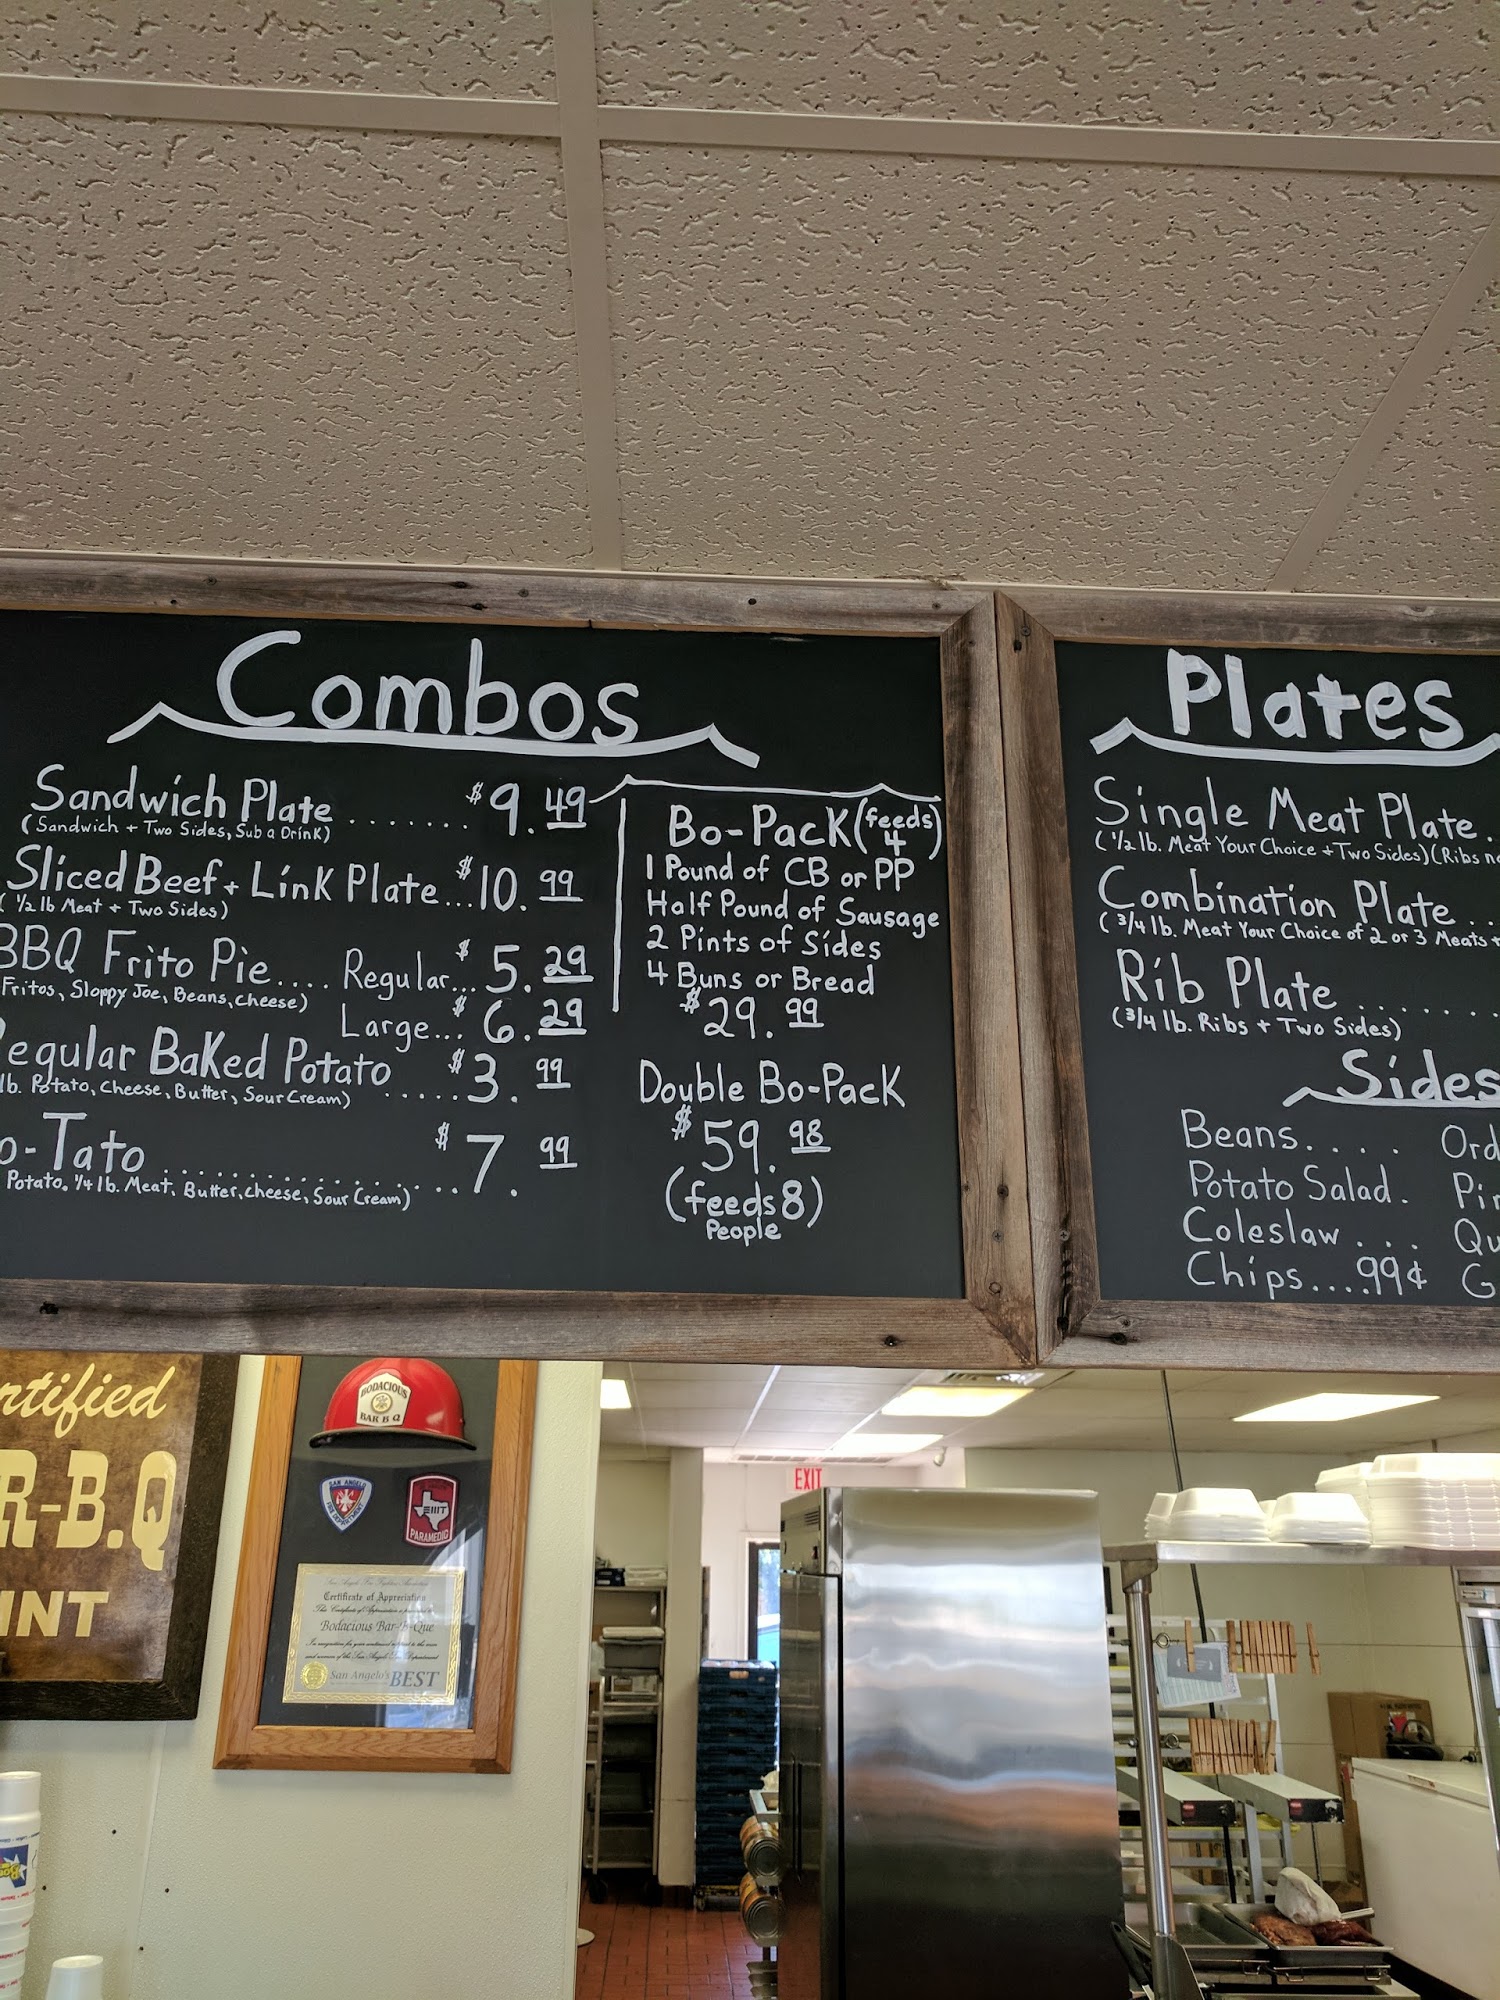 Combos
Sandwich Plate ....... $9.49
(Sandwich + Two Sides, Sub a Drink)
Sliced Beef + Link Plate... $10.99
( 1/2 lb Meat + Two Sides)
BBQ Frito Pie.... Regular... $5.29
Fritos, Sloppy Joe, Beans, cheese)
Large... $6.29
Regular Baked Potato ..... $3.99
lb. Potato, Cheese, Butter, Sour Cream)
o-Tato ............... $7.99
Potato. 1/4 lb. Meat, Butter, cheese, Sour Cream)
Bo-Pack (feeds 4)
1 Pound of CB or PP
Half Pound of Sausage
2 Pints of Sides
4 Buns or Bread
$29.99
Double Bo-Pack
$59.98
(feeds 8)
People
Plates
Single Meat Plate.
( 1/2 lb. Meat Your Choice + Two Sides) (Ribs no
Combination Plate ..
( 3/4 lb. Meat Your Choice of 2 or 3 Meats +
Rib Plate .......
(3/4 lb. Ribs + Two Sides)
Sides
Beans.... Ord
Potato Salad. Pin
Coleslaw .... Qu
Chips....99¢ G
rtified
R-B.Q
INT
BODACIOUS
BAR B Q
SAN ANGELO
FIRE DEPARTMENT
EMT
PARAMEDIC
Certificate of Appreciation
Bodacious Bar-B-Que
San Angelo's BEST
EXIT